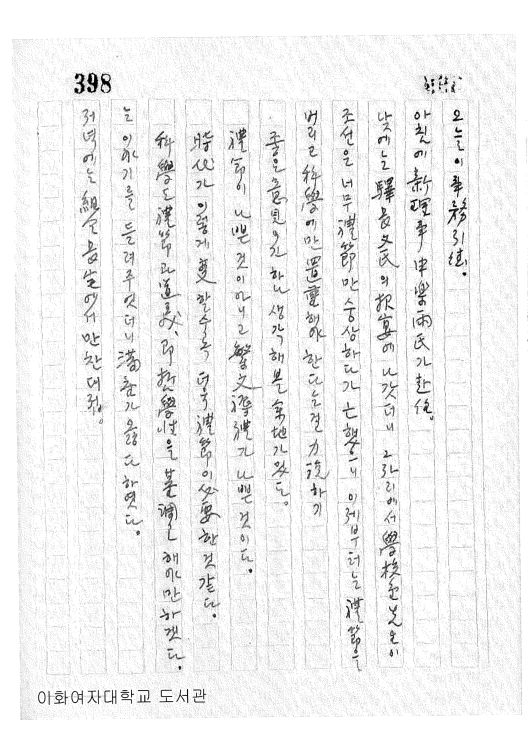 398
오늘이 事務引継。
아침에 新理事 申樂雨氏가 赴任。
낮에는 驛長文氏의 招宴에 나갔더니 그 자리에서 學校 先生이
조선은 너무 禮節만 숭상하다가 亡했으니 이제부터는 禮節을
버리고 科學에만 置重해야 한다는 걸 力說하기
좋은 意見이긴 하나 생각해볼 余地가 있다。
禮節이 나쁜 것이 아니고 繁文褥禮가 나쁜 것이다。
時代가 이렇게 變할수록 더욱 禮節이 必要한 것 같다。
科學도 禮節과 道義、即 哲學性을 基調로 해야만 하겠다。
는 이야기를 들려주었더니 滿座가 옳다 하였다。
저녁에는 組合長宅에서 만찬대접。
이화여자대학교 도서관